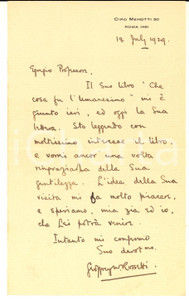 CIRO MENOTTI 30
ROMA (49)
18 July 1929.
Egregio Professore,
Il Suo libro "Che
cosa fu l'Umanesimo" mi è
giunto ieri, ed oggi la Sua
lettera. Sto leggendo con
moltissimo interesse il libro,
e vorrei ancor una volta
ringraziarla della Sua
gentilezza. L'idea della Sua
visita mi fa molto piacere,
e speriamo, mia zia ed io,
che Lei potrà venire.
Intanto mi confermo
Suo devotmo.